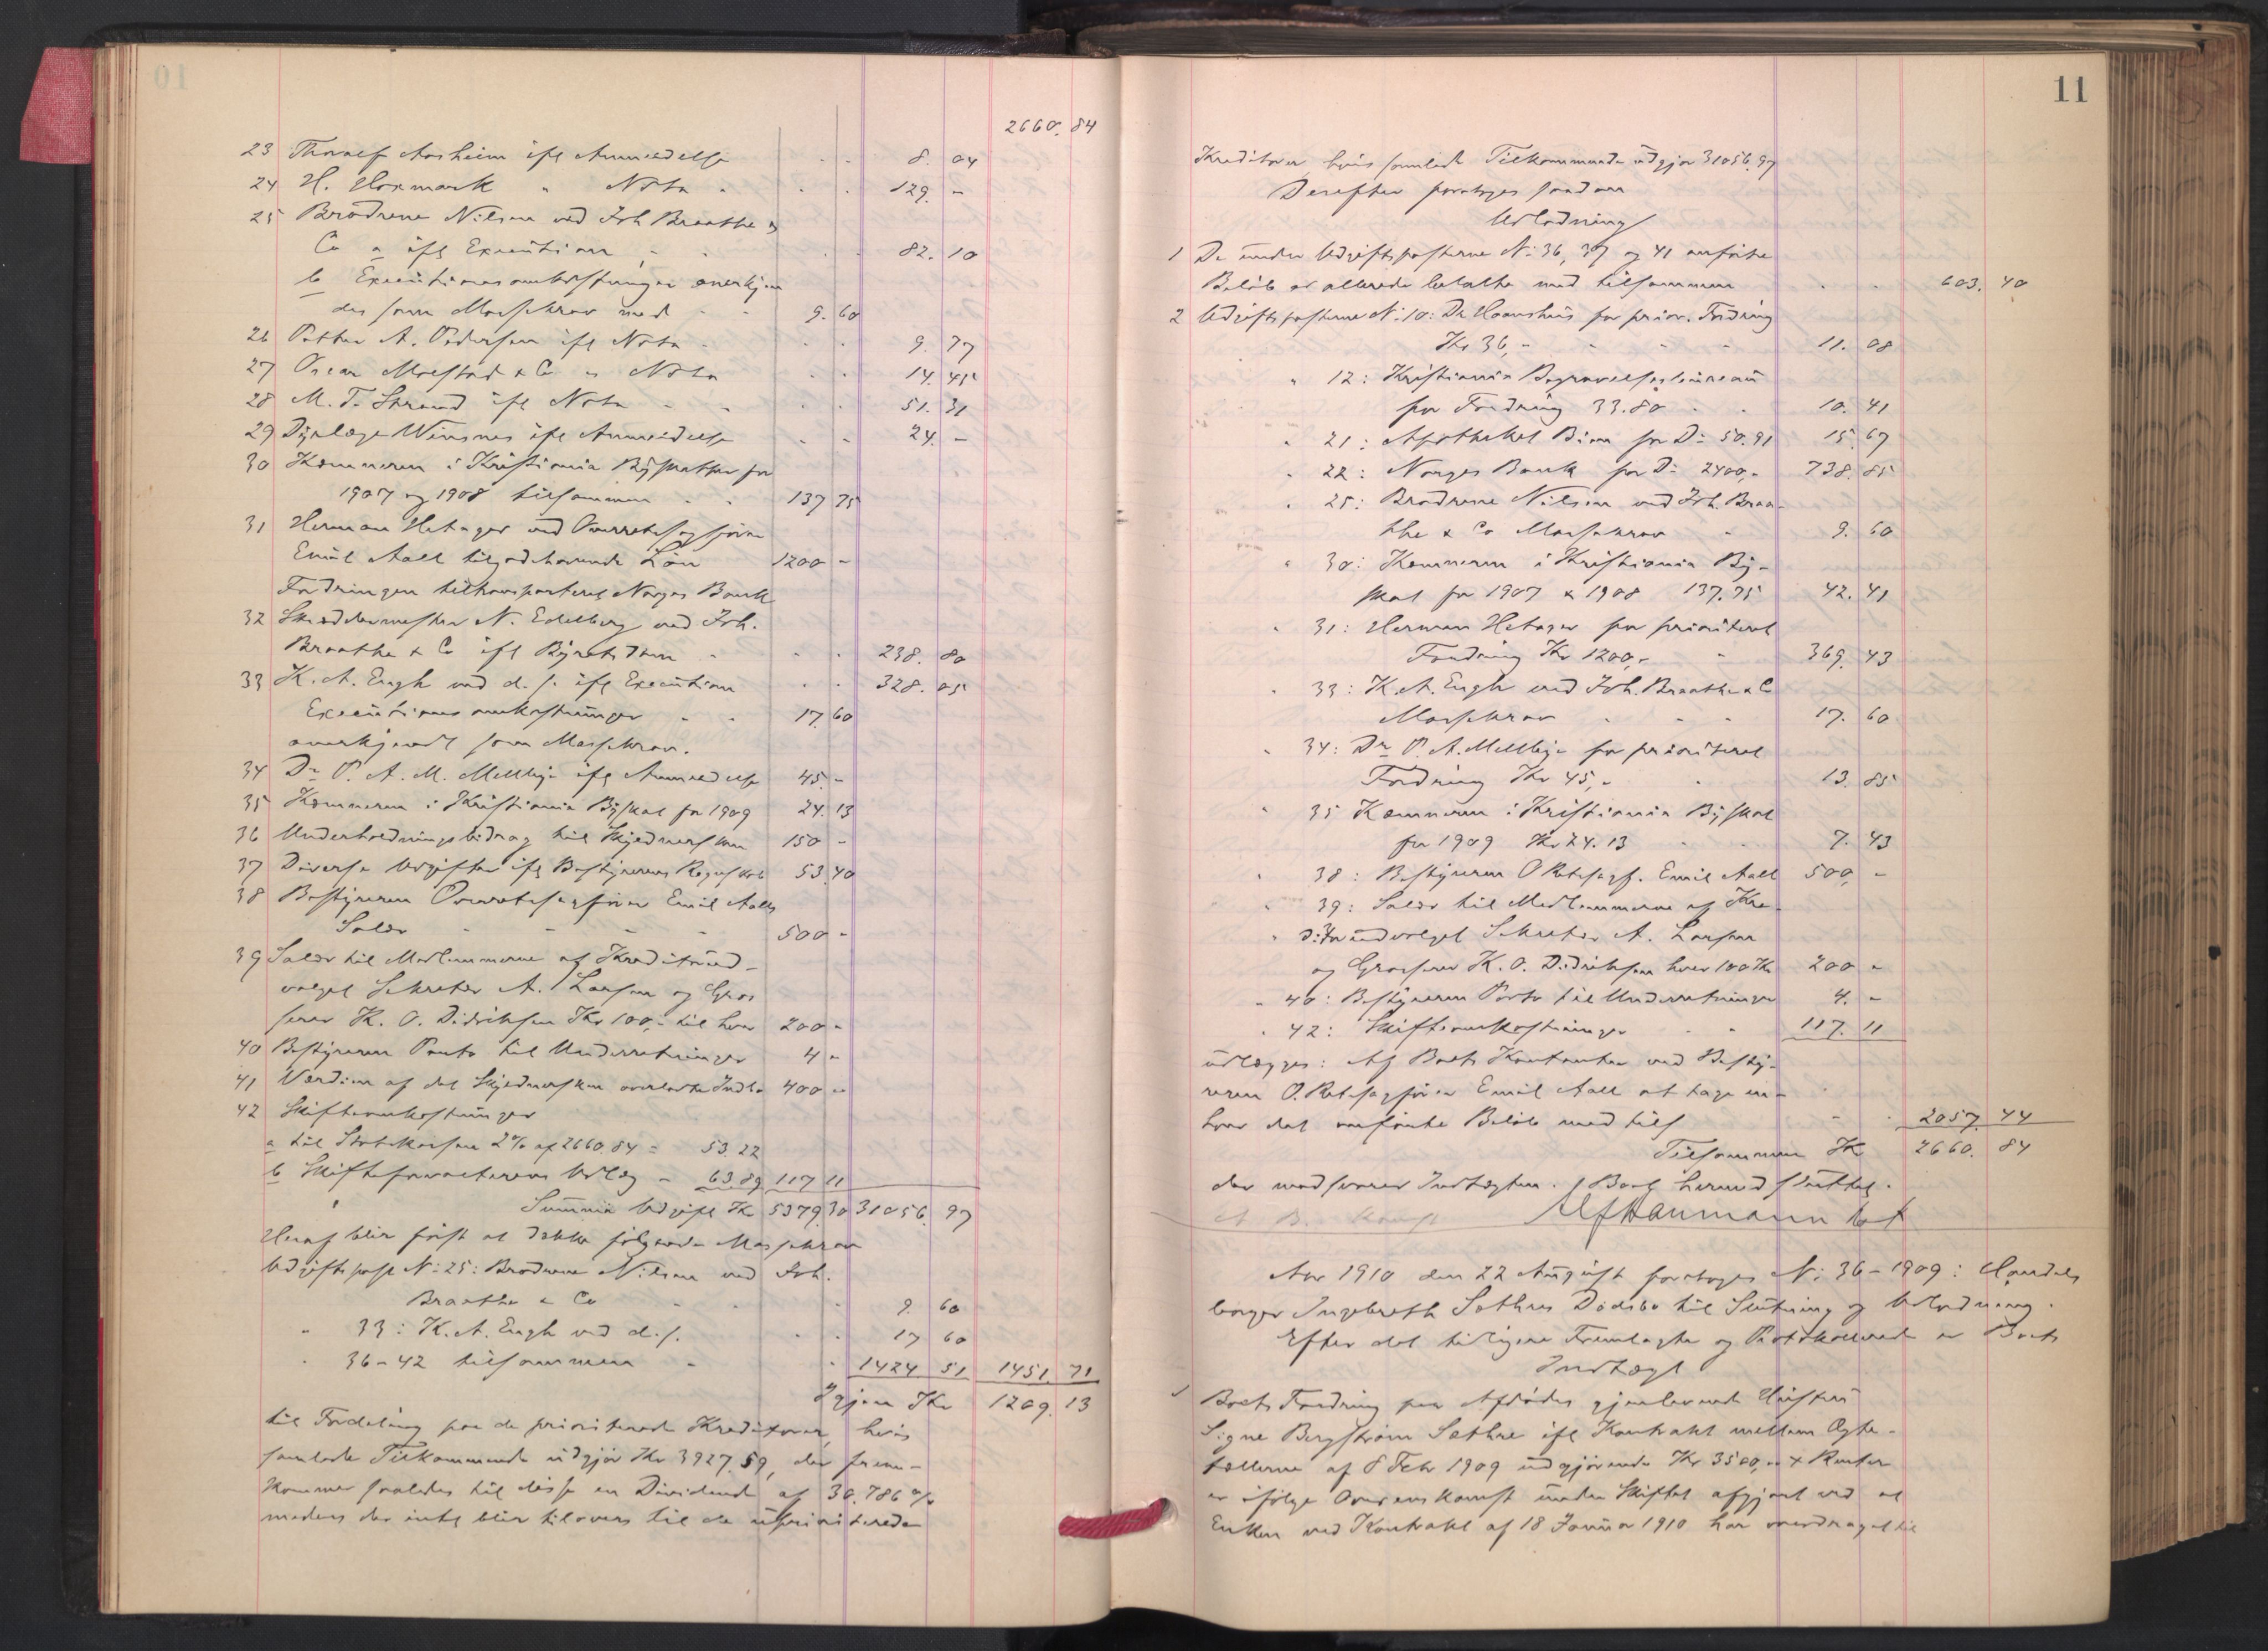 10
2660. 84
23 Thoralf Aasheim ifl Anmeldelse 8. 04
24 H. Hoxmark " Nota 129. -
25 Brødrene Nilsen ved Joh Braathe &
Co a ifl Execution 82. 10
b Executionsomkostninger anerkjen
des som Massekrav med 9. 60
26 Petter A. Pedersen ifl Nota 9. 77
27 Oscar Moestad & Co " Nota 14. 45
28 M. T. Strand ifl Nota 51. 31
29 Dyrlæge Winsnes ifl Anmeldelse 24. -
30 Kæmneren i Kristiania Byskatter for
1907 og 1908 tilsammen 137 75
31 Herman Hetager ved Overretssagfører
Emil Aall tilgodehavende Løn 1200 -
Fordringen tiltransporteret Norges Bank
32 Skræddermester N. Edelberg ved Joh.
Braathe & Co ifl Byretsdom 238. 80
33 K. A. Engh ved d. s. ifl Execution 328. 05
Executionsomkostninger 17. 60
anerkjendt som Massekrav.
34 Dr P. A. M. Mellbye ifl Anmeldelse 45. -
35 Kæmneren i Kristiania Byskat for 1909 24. 13
36 Underholdningsbidrag til Skjednersken 150 -
37 Diverse Udgifter ifl Bestyrerens Regnskab 53. 40
38 Bestyreren Overretssagfører Emil Aalls
Salær 500 -
39 Salær til Medlemmerne af Kreditorud-
valget Sekretær A. Larsen og Gros
serer K. O. Didriksen Kr 100,- til hver 200 -
40 Bestyreren Porto til Underretninger 4 -
41 Værdien af det Skjednersken overladte Indbo 400 -
42 Skifteomkostninger
a til Statskassen 2% af 2660.84 = 53.22
b Skifteforvalterens Udlæg - 63.89 117 11
Summa Udgift Kr 5379.30 31056. 97
Heraf blir først at dække følgende Massekrav
Udgiftspost No 25: Brødrene Nilsen ved Joh.
Braathe & Co 9. 60
" 33: K. A. Engh ved d. s. 17 60
" 36-42 tilsammen 1424 51 1451. 71
Igjen Kr 1209. 13
til Fordeling paa de prioriterede Kreditorer, hvis
samlede Tilkommende udgjør Kr 3927.59, der frem-
kommer saaledes til disse en Dividende af 30.786 %
medens der intet blir tilovers til de uprioriterede
11
Kreditorer, hvis samlede Tilkommende udgjør 31056.97
Derefter foretoges saadan
Udlodning
1 De under Udgiftsposterne No 36, 37 og 41 anførte
Beløb er allerede betalte med tilsammen 603. 40
2 Udgiftsposterne No 10: Dr Haanshus for prior. Fordring
Kr 36,- 11. 08
" 12: Kristiania Begravelsesbureau
for Fordring 33.80 10. 41
" 21: Apotheket Bien for Do 50.91 15. 67
" 22: Norges Bank for Do 2400,- 738. 85
" 25: Brødrene Nilsen ved Joh. Braa-
the & Co Massekrav 9. 60
" 30: Kæmneren i Kristiania By-
skat for 1907 & 1908 137.75 42. 41
" 31: Herman Hetager for prioriteret
Fordring Kr 1200,- 369. 43
" 33: K. A. Engh ved Joh. Braathe & Co
Massekrav 17. 60
" 34: Dr P. A. Mellbye for prioriteret
Fordring Kr 45,- 13. 85
" 35 Kæmneren i Kristiania Byskat
for 1909 Kr 24.13 7. 43
" 38: Bestyreren O Retssagf. Emil Aall 500, -
" 39: Salær til Medlemmerne af Kre-
" ditorudvalget Sekretær A. Larsen
og Grosserer K. O. Didriksen hver 100 Kr 200 -
" 40: Bestyreren Porto til Underretninger 4. -
" 42: Skifteomkostninger 117. 11
udlægges: Af Boets Kontanter ved Besty-
reren O. Retssagfører Emil Aall at tage en-
hver det anførte Beløb med tils 2057. 44
Tilsammen Kr 2660. 84
der modsvarer Indtægten. Boet hermed sluttet.
Aar 1910 den 22 August foretoges No 36-1909: Handels
borger Ingebreth Sethres Dødsbo til Slutning og Udlodning.
Efter det tidligere Fremlagte og Protokollerede er Boets
Indtægt
1 Boets Fordring paa Afdødes gjenlevende Hustru
Signe Bergstrøm Sethre ifl Kontrakt mellem Ægte-
fællerne af 8 Febr 1909 udgjørende Kr 3500,- + Renter
er ifølge Overenskomst under Skiftet afgjort ved at
Enken ved Kontrakt af 18 Januar 1910 har overdraget til